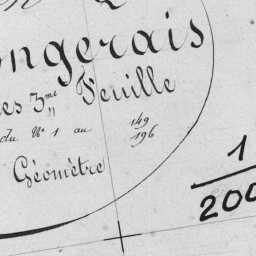 ongerais
es 3me Feuille
du N° 1 au 149/196
Géomètre
1
200